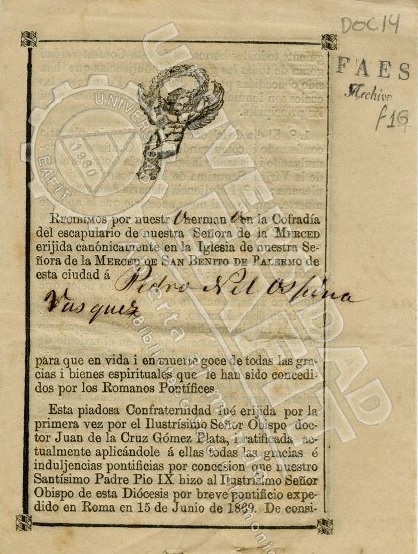 DOC14
FAES
Archivo
f16
RECIBIMOS por nuestr O herman O en la Cofradía
del escapulario de nuestra Señora de la MERCED
erijida canónicamente en la Iglesia de nuestra Se-
ñora de la MERCED DE SAN BENITO DE PALERMO de
esta ciudad á Pedro Nel Ospina
Vasquez
para que en vida i en muerte goce de todas las gra-
cias i bienes espirituales que le han sido concedi-
dos por los Romanos Pontífices.
Esta piadosa Confraternidad fué erijida por la
primera vez por el Ilustrísimo Señor Obispo doc-
tor Juan de la Cruz Gómez Plata, i ratificada ac-
tualmente aplicándole á ellas todas las gracias é
induljencias pontificias por concesion que nuestro
Santísimo Padre Pio IX hizo al Ilustrísimo Señor
Obispo de esta Diócesis por breve pontificio expe-
dido en Roma en 15 de Junio de 1869. De consi-
UNIVERSIDAD
EAFIT
1960